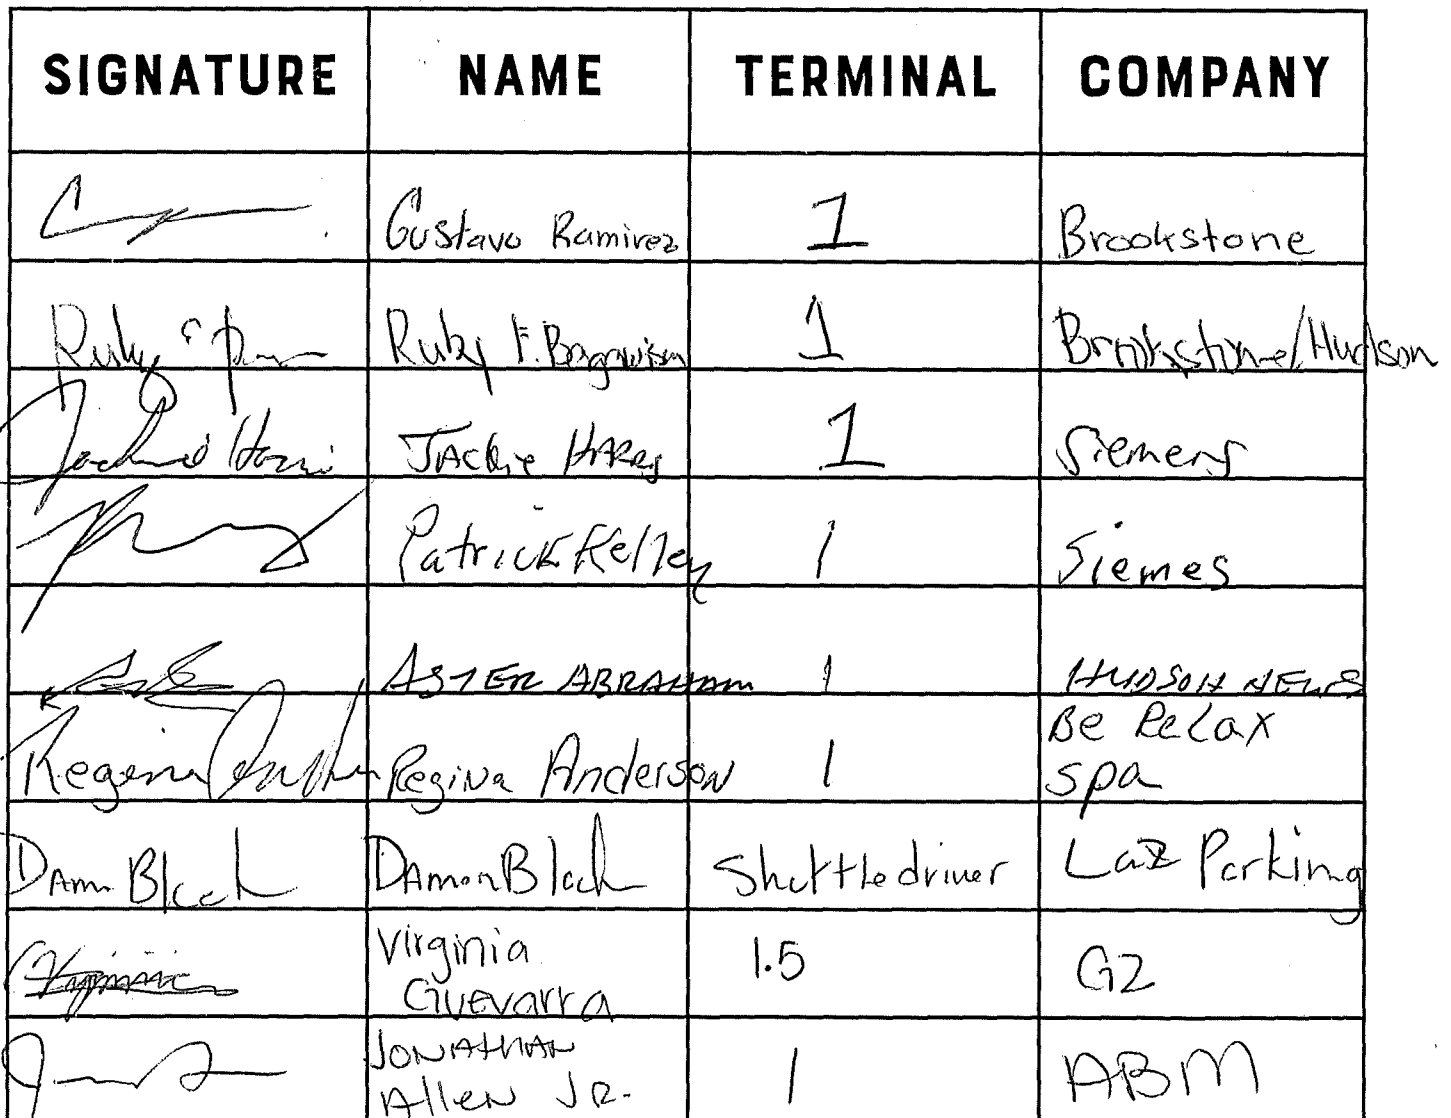 SIGNATURE NAME TERMINAL COMPANY
Gustavo Ramirez 1 Brookstone
Ruby Ruby F. 1 Brookstone/Hudson
Jackie 1 Siemens
Patrick Kelley 1 Siemes
ASTER ABRAHAM 1 HUDSON NEWS
Regina Anderson Regina Anderson 1 Be Relax
spa
Damon Black Damon Black Shuttle driver Laz Parking
Virginia 1.5 G2
Guevarra
JONATHAN 1 ABM
Allen JR.